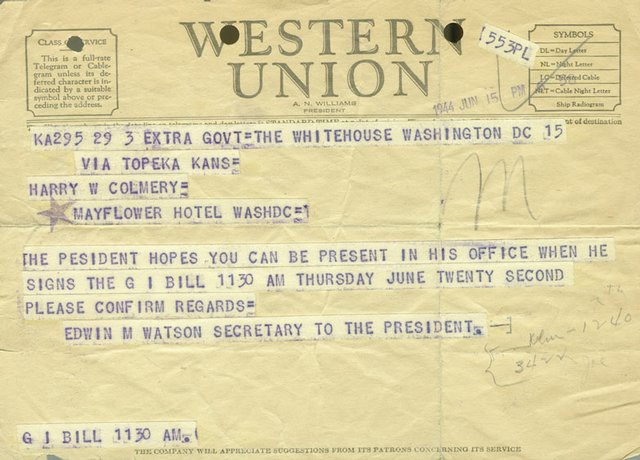 CLASS OF SERVICE
This is a full-rate
Telegram or Cable-
gram unless its de-
ferred character is in-
dicated by a suitable
symbol above or pre-
ceding the address.
WESTERN
UNION
A. N. WILLIAMS
PRESIDENT
1553PL
1944 JUN 15 PM
SYMBOLS
DL=Day Letter
NL=Night Letter
LC=Deferred Cable
NLT=Cable Night Letter
Ship Radiogram
STANDARD TIME at point of destination
KA295 29 3 EXTRA GOVT=THE WHITEHOUSE WASHINGTON DC 15
VIA TOPEKA KANS=
HARRY W COLMERY=
MAYFLOWER HOTEL WASHDC=
M
THE PESIDENT HOPES YOU CAN BE PRESENT IN HIS OFFICE WHEN HE
SIGNS THE G I BILL 1130 AM THURSDAY JUNE TWENTY SECOND
PLEASE CONFIRM REGARDS=
EDWIN M WATSON SECRETARY TO THE PRESIDENT.
1240
3422
G I BILL 1130 AM.
THE COMPANY WILL APPRECIATE SUGGESTIONS FROM ITS PATRONS CONCERNING ITS SERVICE